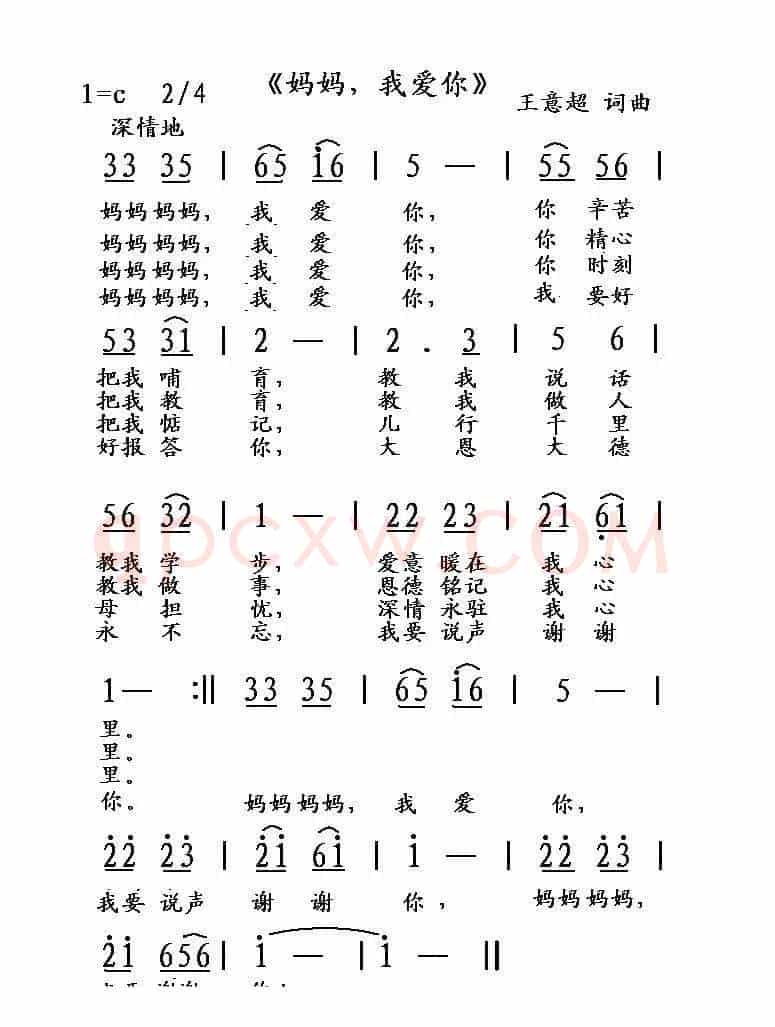 《妈妈，我爱你》
1=c 2/4
王意超 词曲
深情地
33 35 | 65 i6 | 5 — | 55 56 |
妈妈妈妈，我 爱 你，你 辛苦
妈妈妈妈，我 爱 你，你 精心
妈妈妈妈，我 爱 你，你 时刻
妈妈妈妈，我 爱 你，我 要好
53 31 | 2 — | 2 . 3 | 5 6 |
把我 哺 育，教 我 说 话
把我 教 育，教 我 做 人
把我 惦 记，儿 行 千 里
好报 答 你，大 恩 大 德
56 32 | 1 — | 22 23 | 21 61 |
qpcxw.COM
教我 学 步，爱意 暖在 我 心
教我 做 事，恩德 铭记 我 心
母 担 忧，深情 永驻 我 心
永 不 忘，我要 说声 谢 谢
1— :|| 33 35 | 65 i6 | 5 — |
里。
里。
里。
你。 妈妈 妈妈，我 爱 你，
22 23 | 2i 6i | i — | 22 23 |
我要 说声 谢 谢 你，妈妈 妈妈，
2i 656 | i — | i — ||